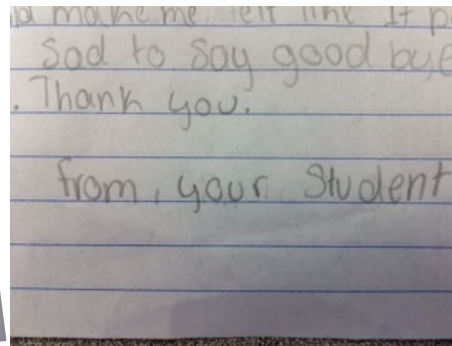 me felt like It p
Sad to Say good bye
. Thank you.
from, your Student